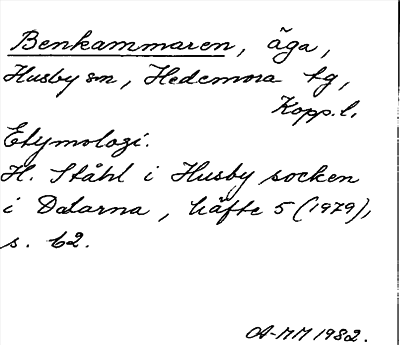 Benkammaren, äga,
Husby sn, Hedemora tg,
Kopp. l.
Etymologi.
H. Ståhl i Husby socken
i Dalarna, häfte 5 (1979),
s. 62.
A-MM 1982.